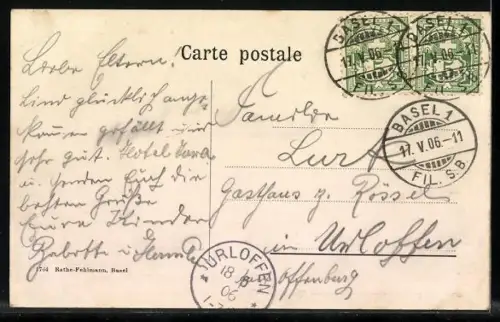 Carte postale
Liebe Eltern!
Sind glücklich ange-
kommen gefällt uns
sehr gut. Hotel
u. senden Euch die
besten Grüße
Eure Kinder
Babette u.
Familie
Gasthaus z. Rössel
in Urloffen
Offenburg
BASEL 1
17.V.06
FIL.
BASEL 1
17.V.06
FIL.
BASEL 1
17.V.06-11
FIL. S.B.
URLOFFEN
18
06
Rathe-Fehlmann, Basel